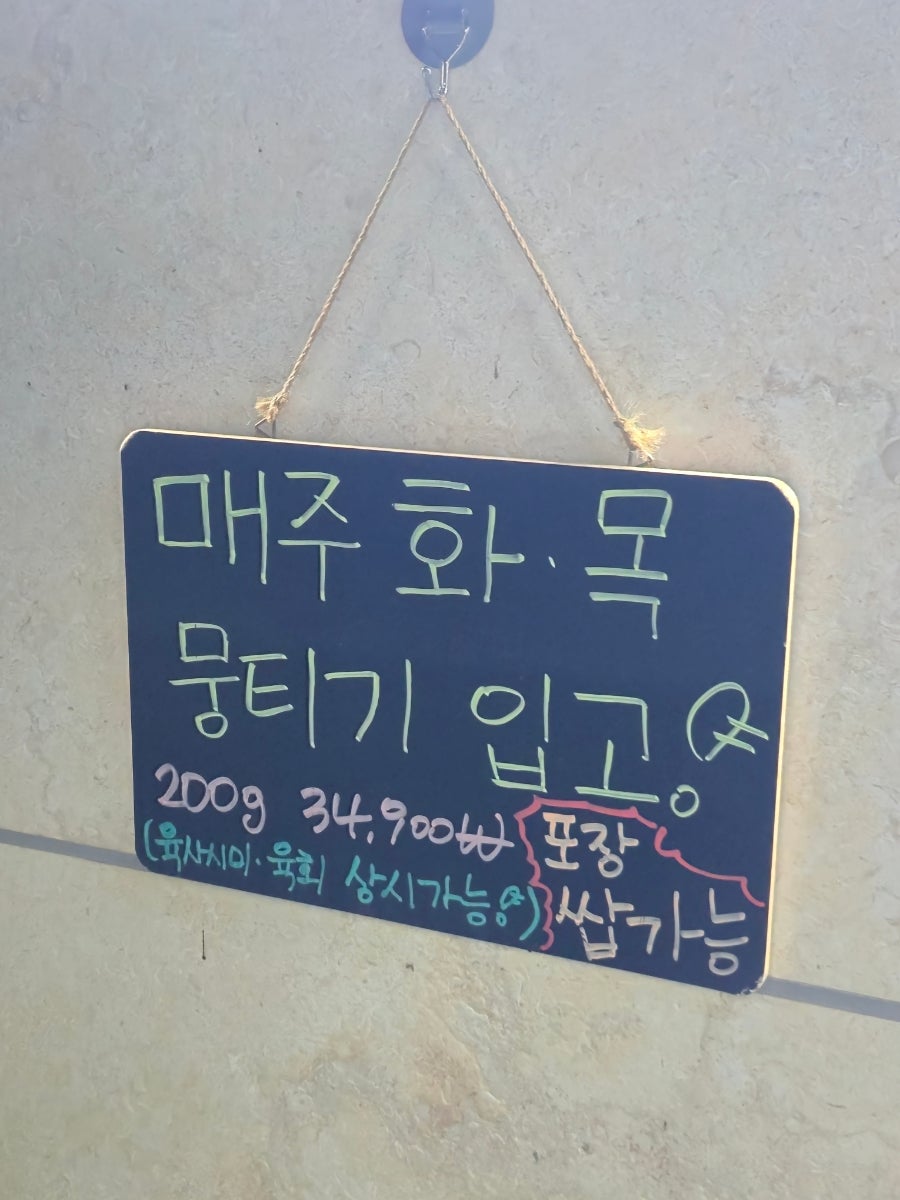 매주 화·목
뭉티기 입고!
200g 34,900₩
(육사시미·육회 상시가능!)
포장
쌉가능